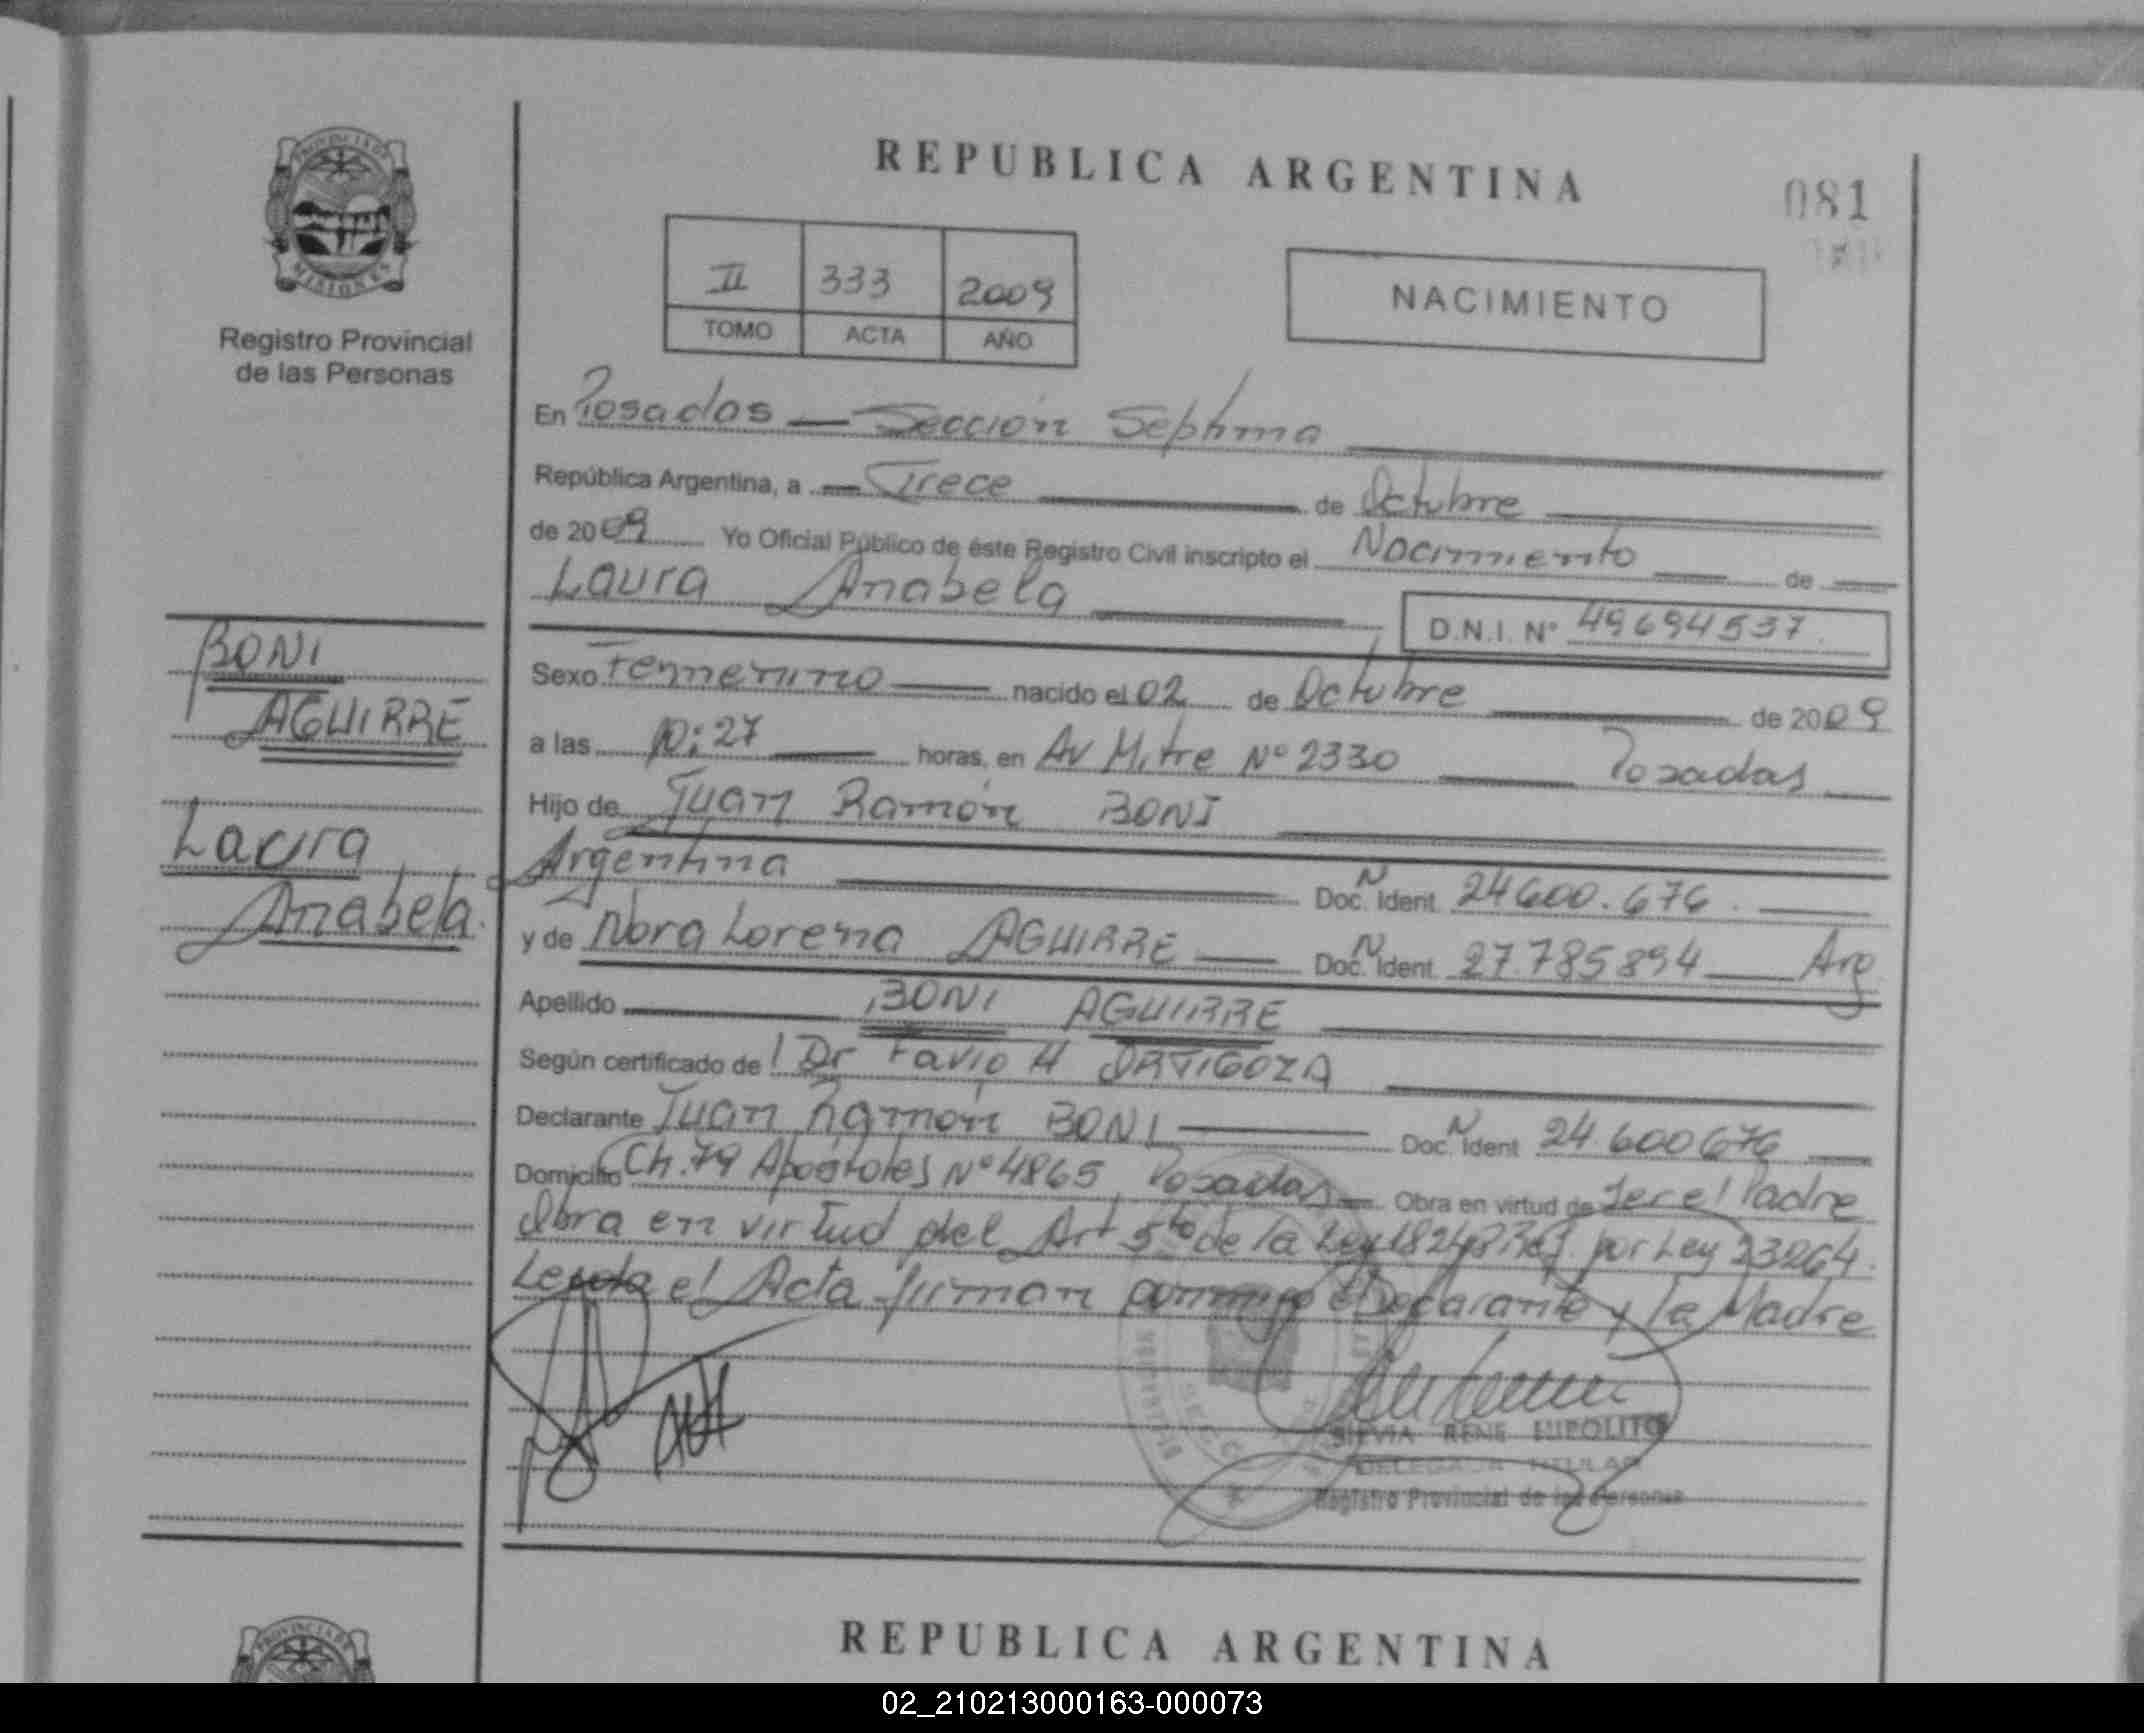 REPUBLICA ARGENTINA
081
PROVINCIA DE
MISIONES
Registro Provincial
de las Personas
II 333 2009
TOMO ACTA AÑO
NACIMIENTO
En Posadas — Sección Septima
República Argentina, a — Trece de Octubre
de 2009 Yo Oficial Público de éste Registro Civil inscripto el Nacimiento de
Laura Anabela
D.N.I. Nº 49694537.
BONI
AGUIRRE
Laura
Anabela.
Sexo Femenino nacido el 02 de Octubre de 2009
a las 10:27 horas, en Av Mitre Nº 2330 Posadas
Hijo de Juan Ramón BONI
Argentina Doc. N Ident. 24600.676.
y de Nora Lorena AGUIRRE Doc. N Ident. 27.785894 Arg
Apellido BONI AGUIRRE
Según certificado de l Dr Favio H ORTIGOZA
Declarante Juan Ramón BONI Doc. N Ident 24.600676
Domicilio Ch. 79 Apóstoles Nº 4865 Posadas Obra en virtud de Ser el Padre
Obra en virtud del Art 5to de la Ley 18248 por Ley 23264.
Leida el Acta firman conmigo el Declarante y la Madre
SILVIA RENE LUPOLITO
DELEGADA TITULAR
Registro Provincial de las Personas
REPUBLICA ARGENTINA
PROVINCIA DE
02_210213000163-000073